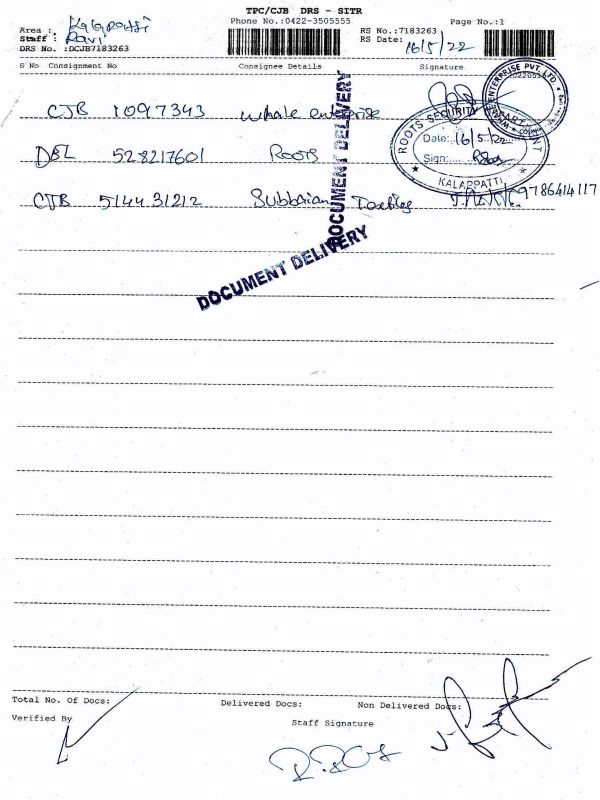 TPC/CJB DRS - SITR
Phone No.:0422-3505555 Page No.:1
Area : Kalapatti
Staff : Ravi
DRS No. :DCJB7183263
RS No.:7183263
RS Date: 16/5/22
S No Consignment No Consignee Details Signature
CJB 1097343 whale enterprise
DBL 528217601 Roots
CJB 514431212 Subbaian Textiles 9786414117
ENTERPRISE PVT. LTD.
ROOTS SECURITY
Date: 16/5/22
Sign:
KALAPPATTI
DOCUMENT DELIVERY
DOCUMENT DELIVERY
Total No. Of Docs: Delivered Docs: Non Delivered Docs:
Verified By Staff Signature